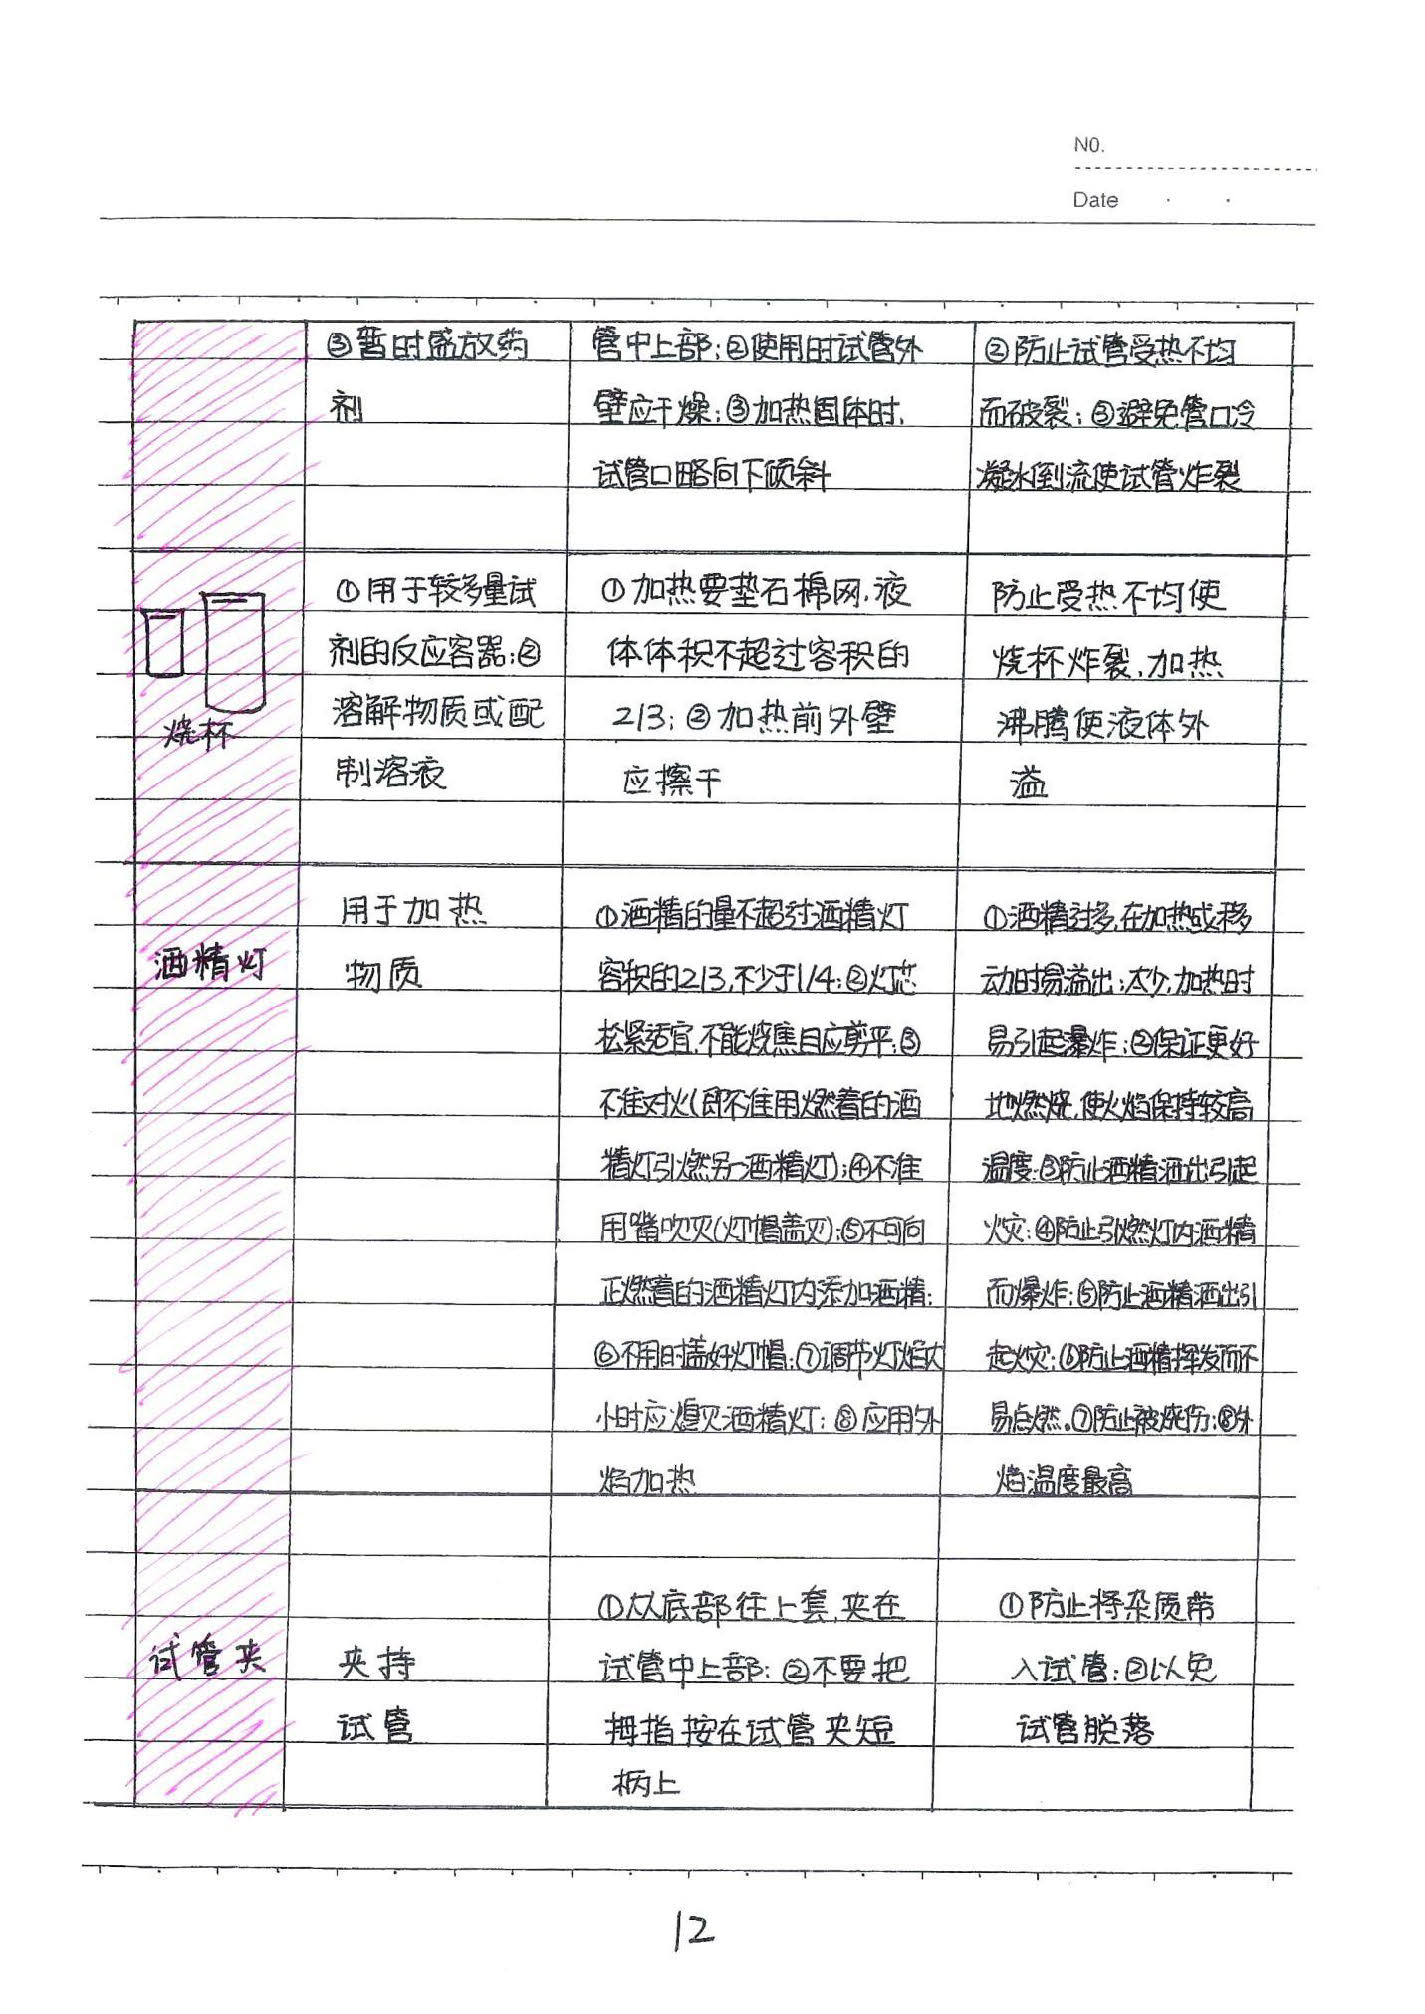 NO.
Date
③暂时盛放药
剂
管中上部;②使用时试管外
壁应干燥;③加热固体时,
试管口略向下倾斜
②防止试管受热不均
而破裂;③避免管口冷
凝水倒流使试管炸裂
烧杯
①用于较多量试
剂的反应容器;②
溶解物质或配
制溶液
①加热要垫石棉网,液
体体积不超过容积的
2/3;②加热前外壁
应擦干
防止受热不均使
烧杯炸裂,加热
沸腾使液体外
溢
酒精灯
用于加热
物质
①酒精的量不超过酒精灯
容积的2/3,不少于1/4;②灯芯
松紧适宜,不能烧焦且应剪平;③
不准对火(即不准用燃着的酒
精灯引燃另一酒精灯);④不准
用嘴吹灭(灯帽盖灭);⑤不可向
正燃着的酒精灯内添加酒精;
⑥不用时盖好灯帽;⑦调节灯焰大
小时应熄灭酒精灯;⑧应用外
焰加热
①酒精过多,在加热或移
动时易溢出;太少,加热时
易引起爆炸;②保证更好
地燃烧,使火焰保持较高
温度;③防止酒精洒出引起
火灾;④防止引燃灯内酒精
而爆炸;⑤防止酒精洒出引
起火灾;⑥防止酒精挥发而不
易点燃,⑦防止被烧伤;⑧外
焰温度最高
试管夹
夹持
试管
①从底部往上套,夹在
试管中上部;②不要把
拇指按在试管夹短
柄上
①防止将杂质带
入试管;②以免
试管脱落
12